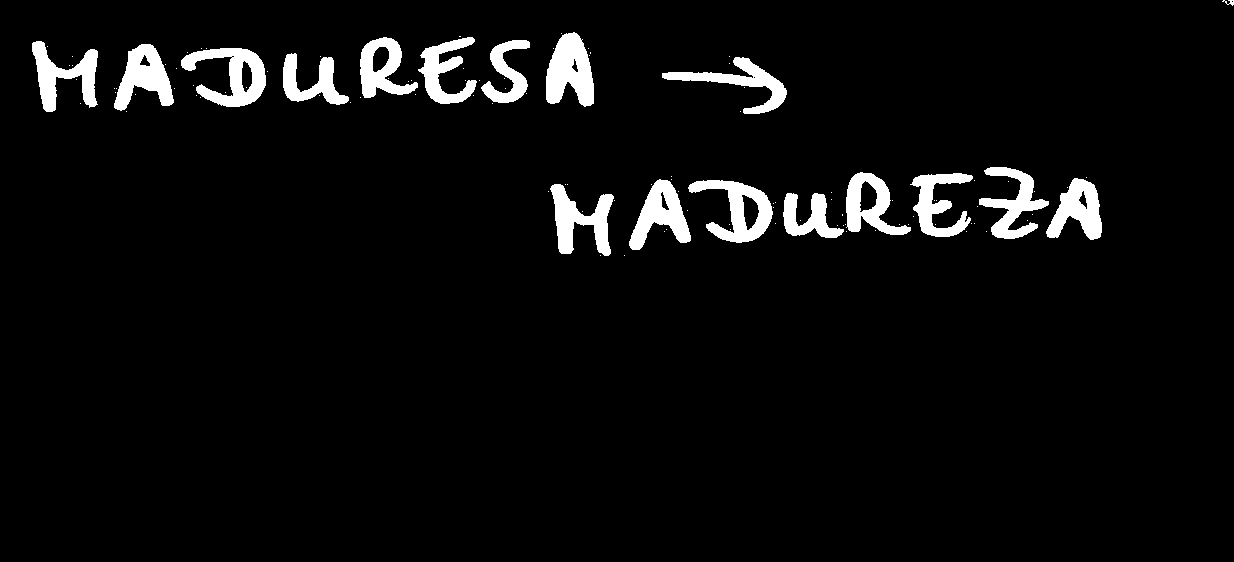 MADURESA →
MADUREZA